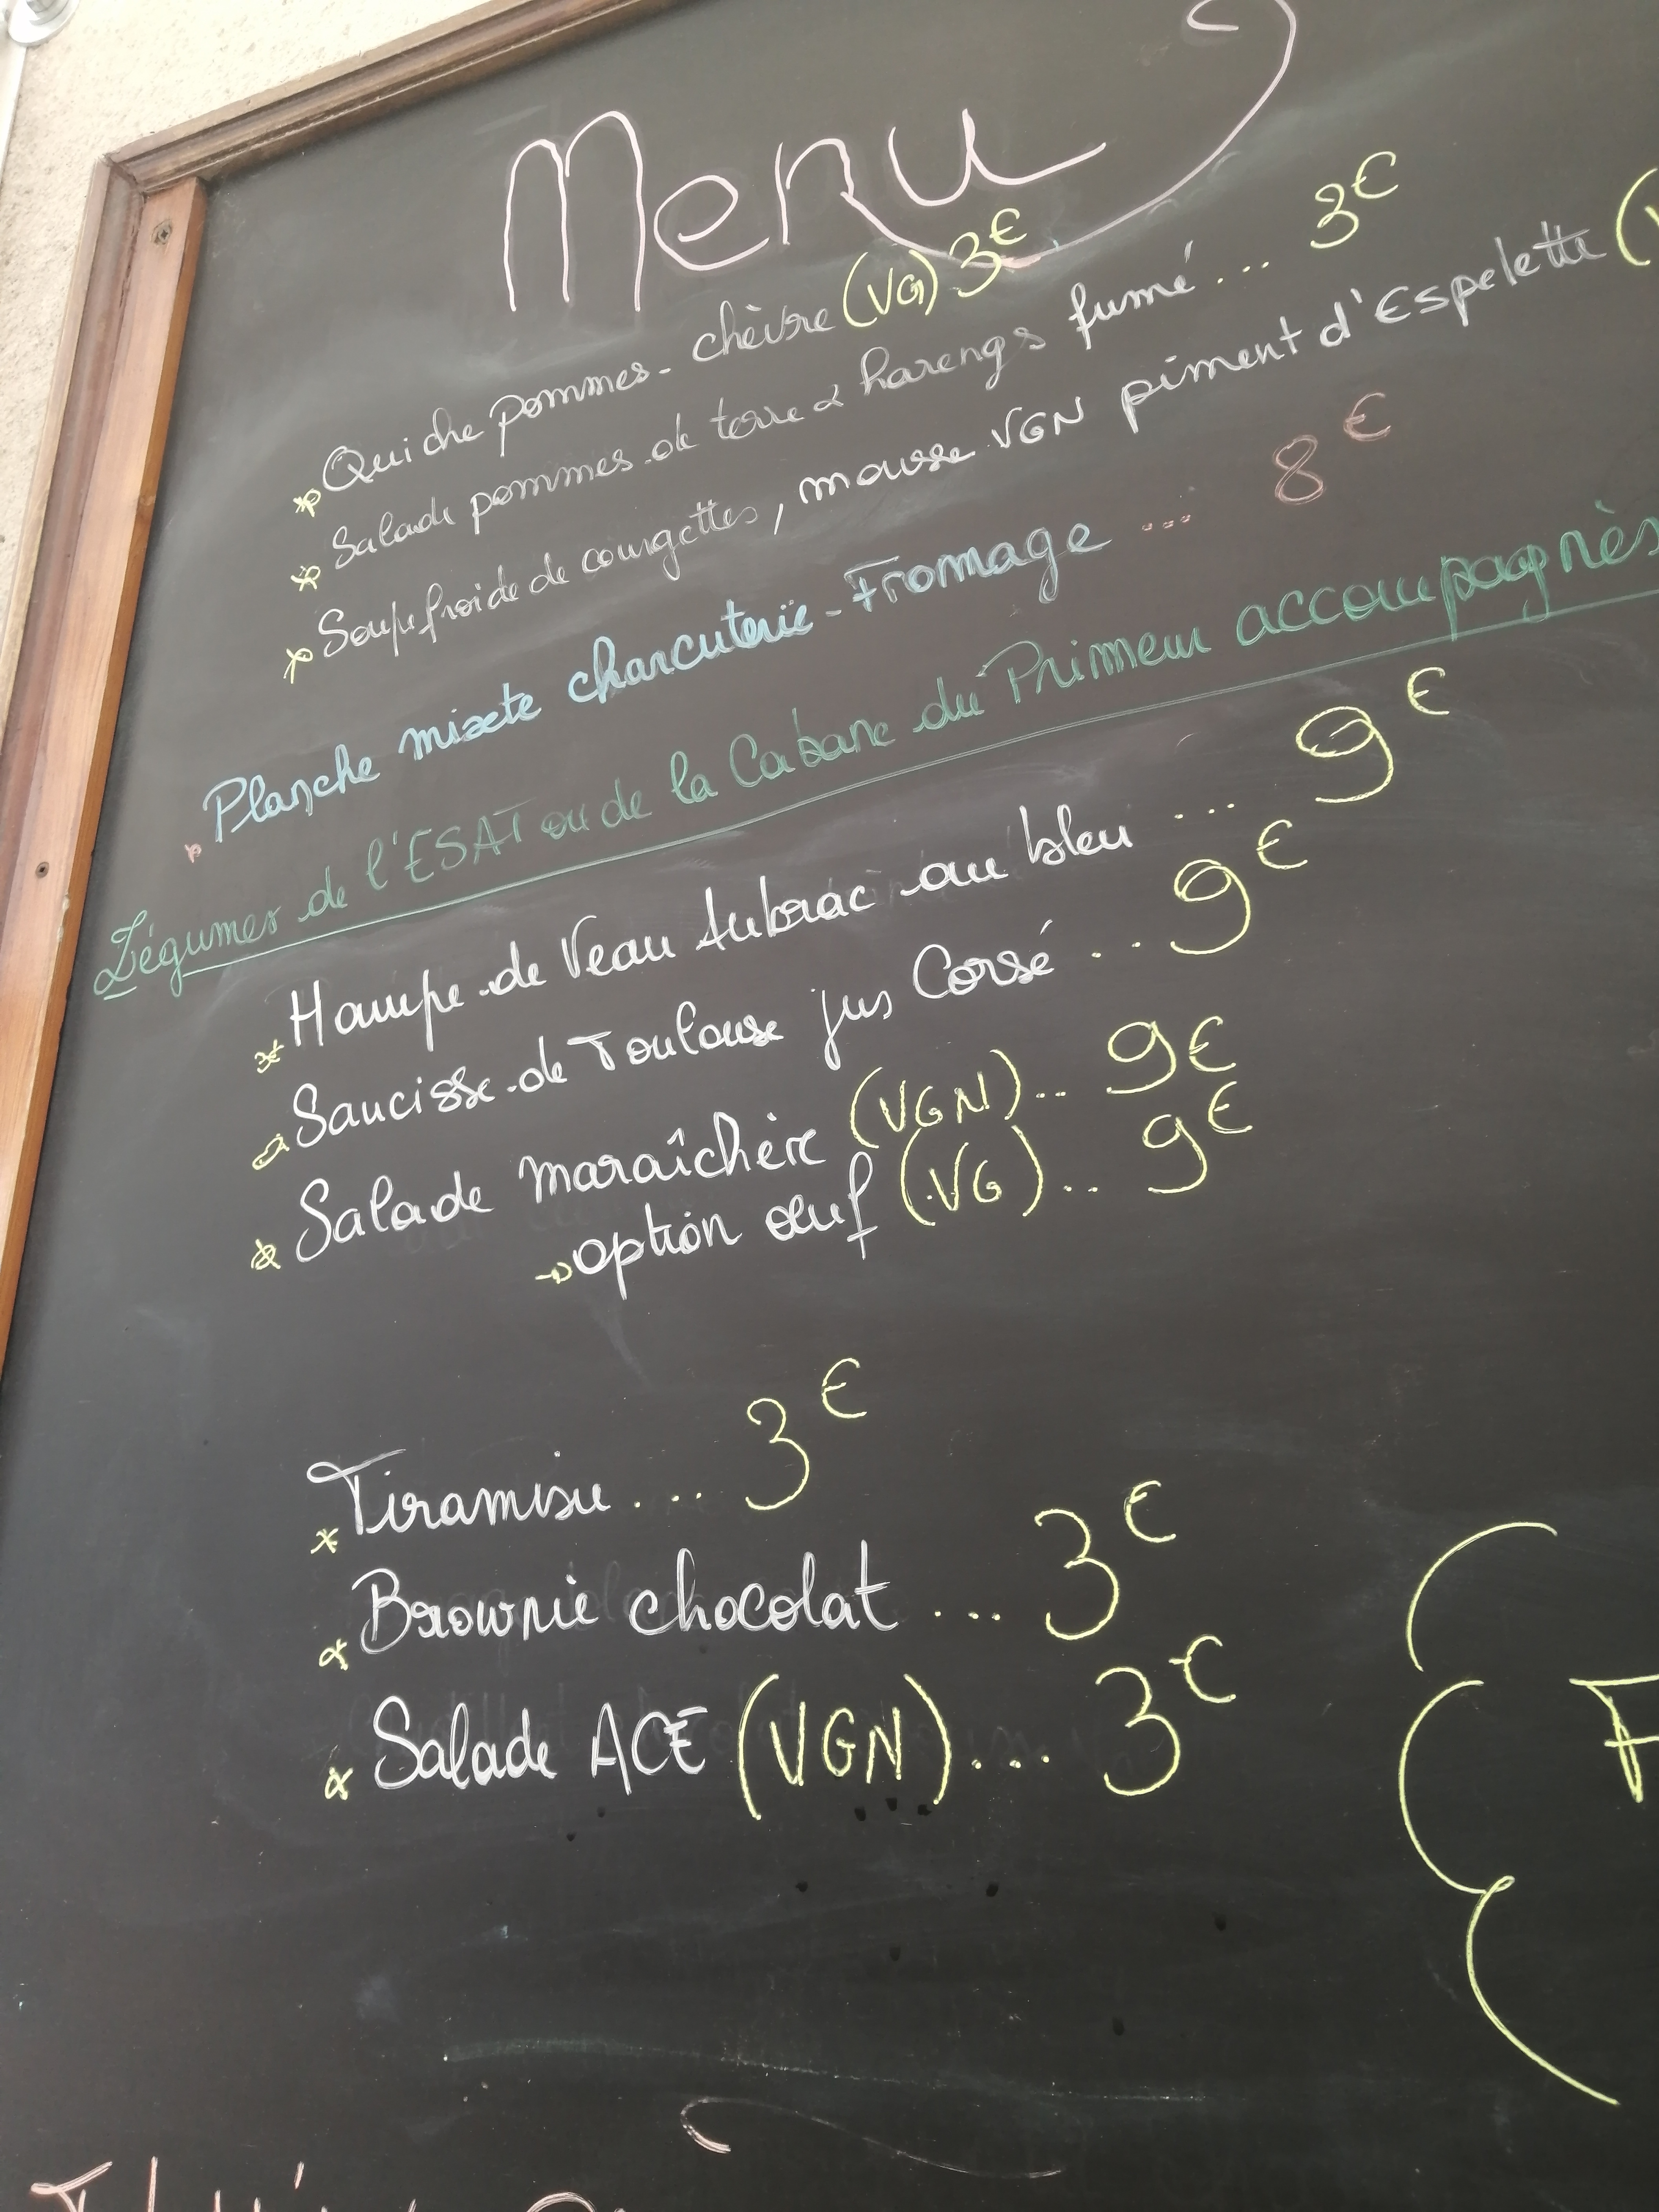 Menu
Quiche pommes - chèvre (VG) 3€
Salade pommes de terre & harengs fumé ... 3€
Soupe froide de courgettes, mousse VGN piment d'Espelette (
Planche mixte charcuterie - Fromage ... 8€
Légumes de l'ESAT ou de la Cabane du Primeur accompagnés
Hampe de Veau Aubrac au bleu ... 9€
Saucisse de Toulouse jus Corsé ... 9€
Salade maraîchère (VGN) .. 9€
→ option œuf (VG) .. 9€
Tiramisu .... 3€
Brownie chocolat .... 3€
Salade ACE (VGN) ... 3€
F